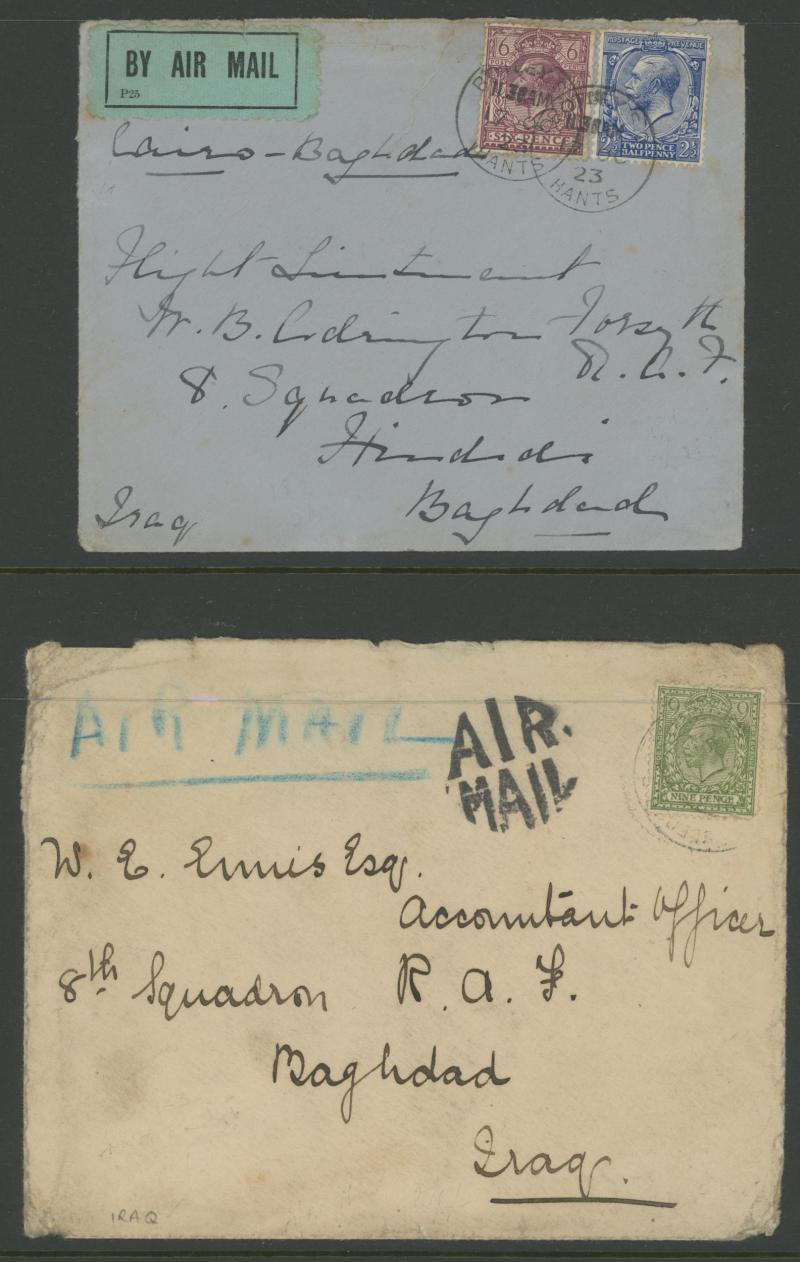 BY AIR MAIL
P25
6 6
SIX PENCE
POSTAGE REVENUE
2½ TWO PENCE HALFPENNY 2½
11.30AM
11.30AM
23
HANTS
HANTS
Cairo-Baghdad
Flight Lieutenant
W. B. Codrington Forsyth
8. Squadron R.A.F.
Hinaidi
Baghdad
Iraq
AIR MAIL
AIR.
MAIL
9 9
NINE PENCE
W. E. Ennis Esq.
Accountant Officer
8th Squadron R. A. F.
Baghdad
Iraq.
IRAQ